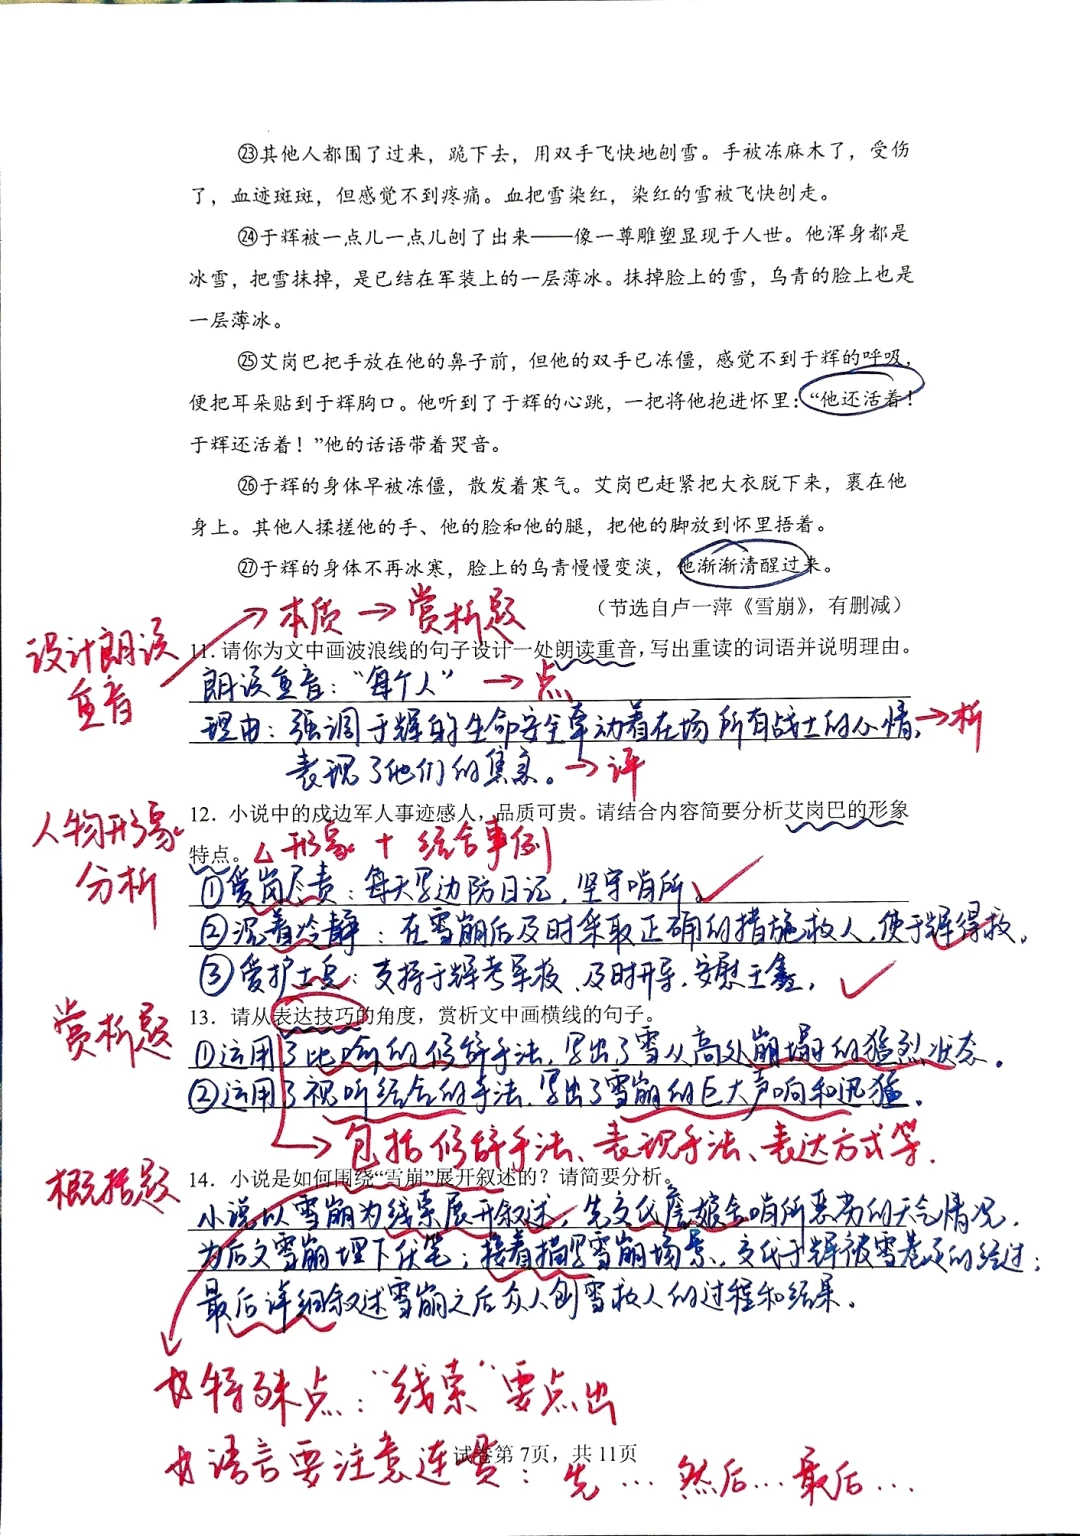 ㉓其他人都围了过来，跪下去，用双手飞快地刨雪。手被冻麻木了，受伤
了，血迹斑斑，但感觉不到疼痛。血把雪染红，染红的雪被飞快刨走。
㉔于辉被一点儿一点儿刨了出来——像一尊雕塑显现于人世。他浑身都是
冰雪，把雪抹掉，是已结在军装上的一层薄冰。抹掉脸上的雪，乌青的脸上也是
一层薄冰。
㉕艾岗巴把手放在他的鼻子前，但他的双手已冻僵，感觉不到于辉的呼吸，
便把耳朵贴到于辉胸口。他听到了于辉的心跳，一把将他抱进怀里：“他还活着！
于辉还活着！”他的话语带着哭音。
㉖于辉的身体早被冻僵，散发着寒气。艾岗巴赶紧把大衣脱下来，裹在他
身上。其他人揉搓他的手、他的脸和他的腿，把他的脚放到怀里捂着。
㉗于辉的身体不再冰寒，脸上的乌青慢慢变淡，他渐渐清醒过来。
（节选自卢一萍《雪崩》，有删减）
设计朗读重音→本质→赏析题
11. 请你为文中画波浪线的句子设计一处朗读重音，写出重读的词语并说明理由。
朗读重音：“每个人”→点
理由：强调于辉的生命安全牵动着在场所有战士的心情，→析
表现了他们的焦急。→评
人物形象分析
12. 小说中的戍边军人事迹感人，品质可贵。请结合内容简要分析艾岗巴的形象
特点。△形象+结合事例
①爱岗尽责：每天写边防日记，坚守哨所。
②沉着冷静：在雪崩后及时采取正确的措施救人，使于辉得救。
③爱护士兵：支持于辉考军校，及时开导、安慰王鑫。
赏析题
13. 请从表达技巧的角度，赏析文中画横线的句子。
①运用了比喻的修辞手法，写出了雪从高处崩塌的猛烈状态。
②运用了视听结合的手法，写出了雪崩的巨大声响和迅猛。
→包括修辞手法、表现手法、表达方式等.
概括题
14. 小说是如何围绕“雪崩”展开叙述的？请简要分析。
小说以雪崩为线索展开叙述，先交代詹娘舍哨所恶劣的天气情况，
为后文雪崩埋下伏笔；接着描写雪崩场景，交代于辉被雪卷走的经过；
最后详细叙述雪崩之后众人刨雪救人的过程和结果。
特殊点：“线索”要点出
语言要注意连贯：先…然后…最后…
试卷第 7页，共 11页